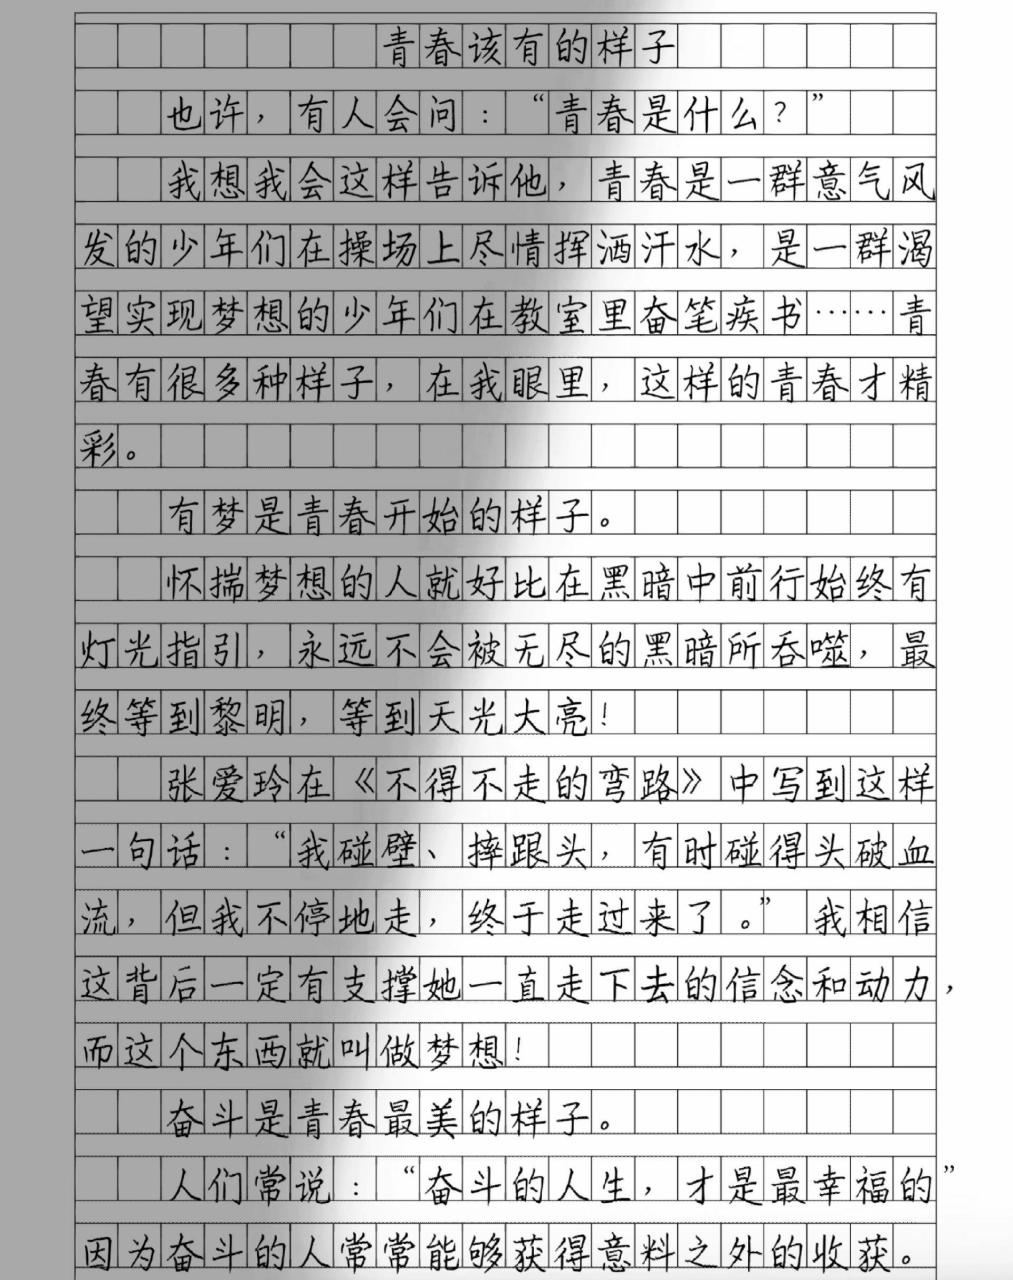 青春该有的样子
也许，有人会问：“青春是什么？”
我想我会这样告诉他，青春是一群意气风
发的少年们在操场上尽情挥洒汗水，是一群渴
望实现梦想的少年们在教室里奋笔疾书……青
春有很多种样子，在我眼里，这样的青春才精
彩。
有梦是青春开始的样子。
怀揣梦想的人就好比在黑暗中前行始终有
灯光指引，永远不会被无尽的黑暗所吞噬，最
终等到黎明，等到天光大亮！
张爱玲在《不得不走的弯路》中写到这样
一句话：“我碰壁、摔跟头，有时碰得头破血
流，但我不停地走，终于走过来了。”我相信
这背后一定有支撑她一直走下去的信念和动力，
而这个东西就叫做梦想！
奋斗是青春最美的样子。
人们常说：“奋斗的人生，才是最幸福的”
因为奋斗的人常常能够获得意料之外的收获。